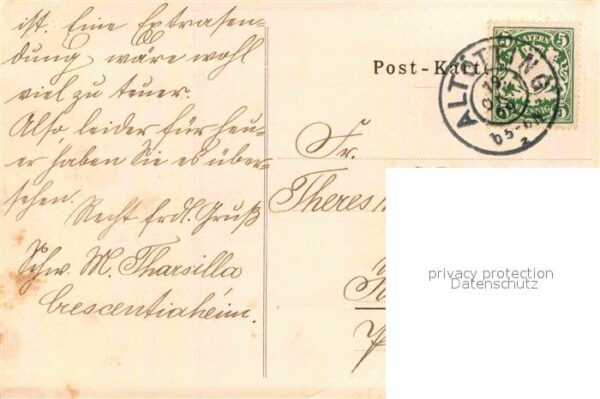 ist. Eine Extrasen-
dung wäre wohl
viel zu teuer.
Also leider für heu-
er haben Sie es über-
sehen.
Recht frdl. Gruß
Schw. M. Tharsilla
Crescentiaheim.
Post-Karte
5 BAYERN 5
PFENNIG
ALTÖTTING
Fr.
Theres
privacy protection
Datenschutz